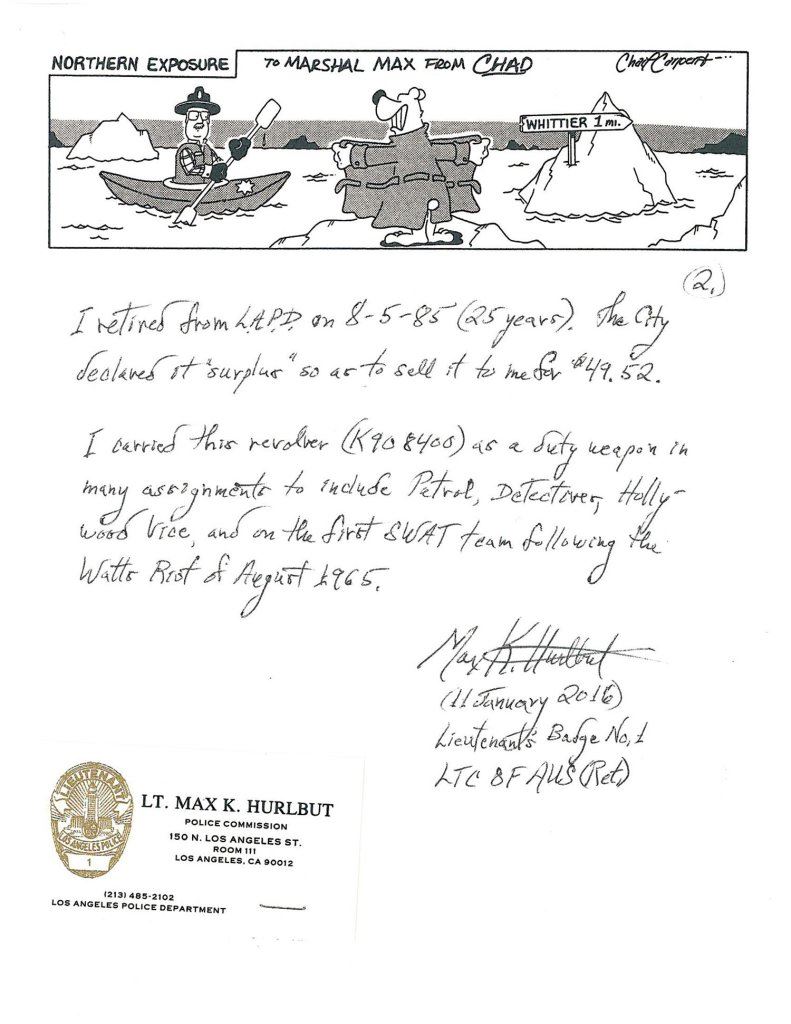 NORTHERN EXPOSURE
TO MARSHAL MAX FROM CHAD
WHITTIER 1 MI.
(2.)
I retired from L.A.P.D. on 8-5-85 (25 years). The City
declared it "surplus" so as to sell it to me for $49.52.
I carried this revolver (K908400) as a duty weapon in
many assignments to include Patrol, Detectives, Holly-
wood Vice, and on the first SWAT team following the
Watts Riot of August 1965.
Max K. Hurlbut
(11 January 2016)
Lieutenant's Badge No. 1
LTC SF AUS (Ret)
LIEUTENANT
LOS ANGELES POLICE
1
LT. MAX K. HURLBUT
POLICE COMMISSION
150 N. LOS ANGELES ST.
ROOM 111
LOS ANGELES, CA 90012
(213) 485-2102
LOS ANGELES POLICE DEPARTMENT